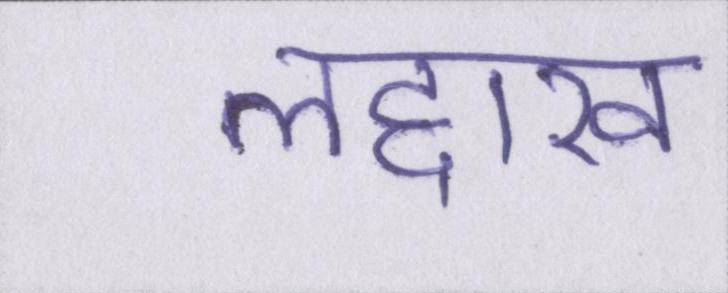 लद्दाख